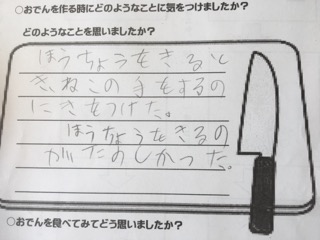 ○おでんを作る時にどのようなことに気をつけましたか?
どのようなことを思いましたか?
ほうちょうをきると
き、ねこの手をするの
にきをつけた。
ほうちょうをきるの
がたのしかった。
○おでんを食べてみてどう思いましたか?